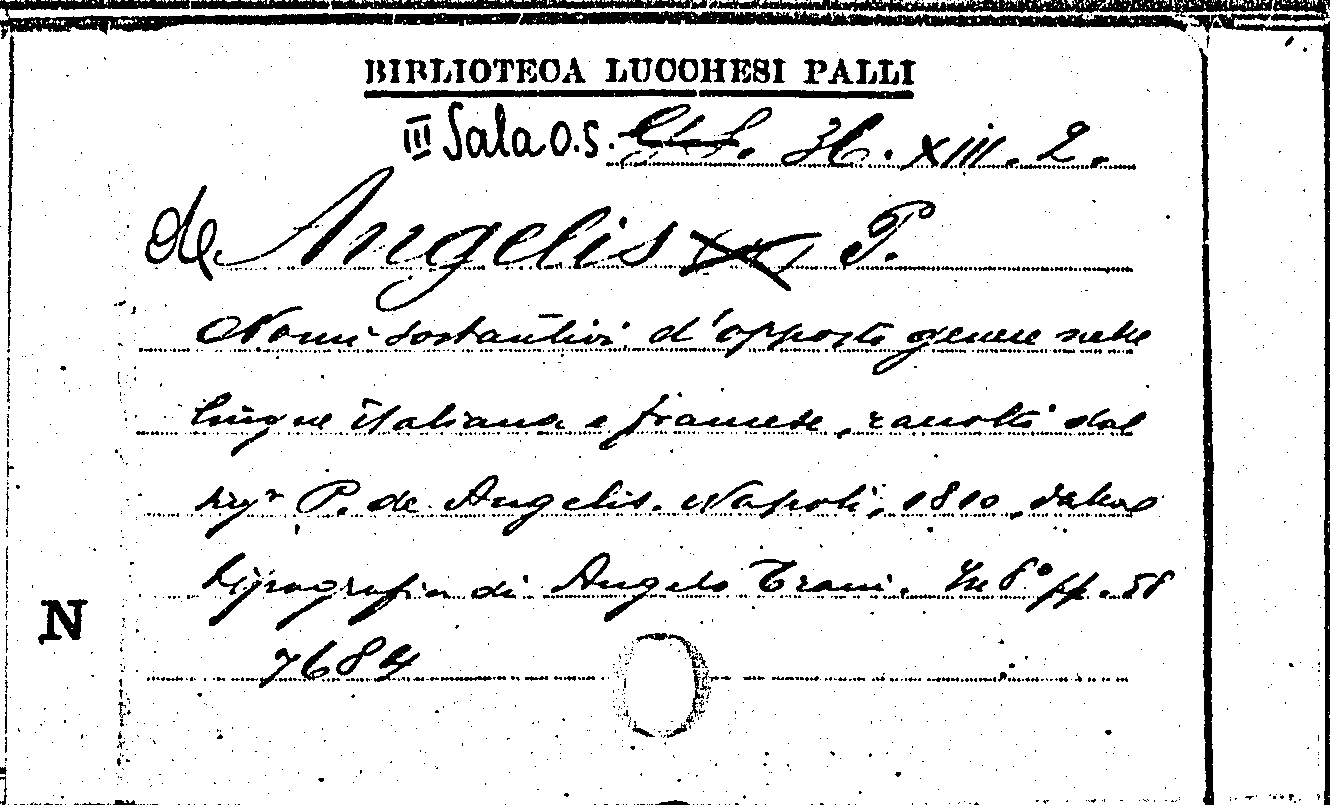 BIBLIOTECA LUCCHESI PALLI
III Sala O.S. H. XIII. 2.
de Angelis P.
Nomi sostantivi d'opposto genere nelle
lingue italiana e francese, raccolti dal
sigr P. de Angelis. Napoli, 1810, dalla
tipografia di Angelo Trani. In 8° pp. 58
N
7684